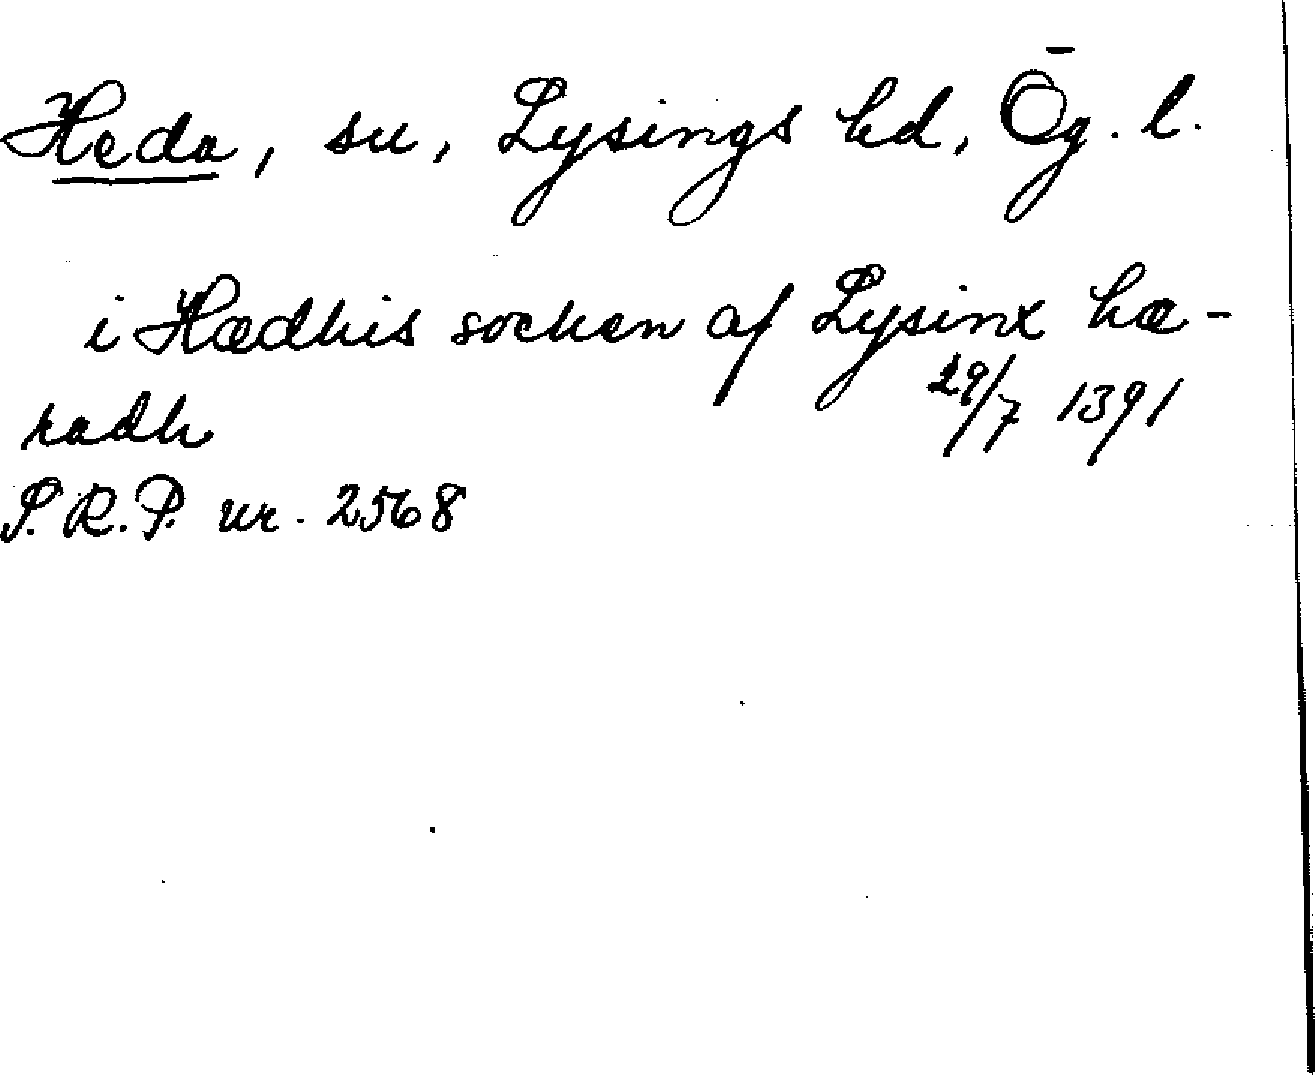 Heda, sn, Lysings hd, Ög. l.
i Hædhis sochen af Lysinx hæ-
radh 29/7 1391
S. R. P. nr. 2568